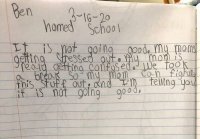 Ben
3-16-20
homed school
It is not going good. my mom
getting stressed out. My mom is
really getting confused. We took
a break so my mom can figure
this stuff out. and I'm telling you
it is not going good.